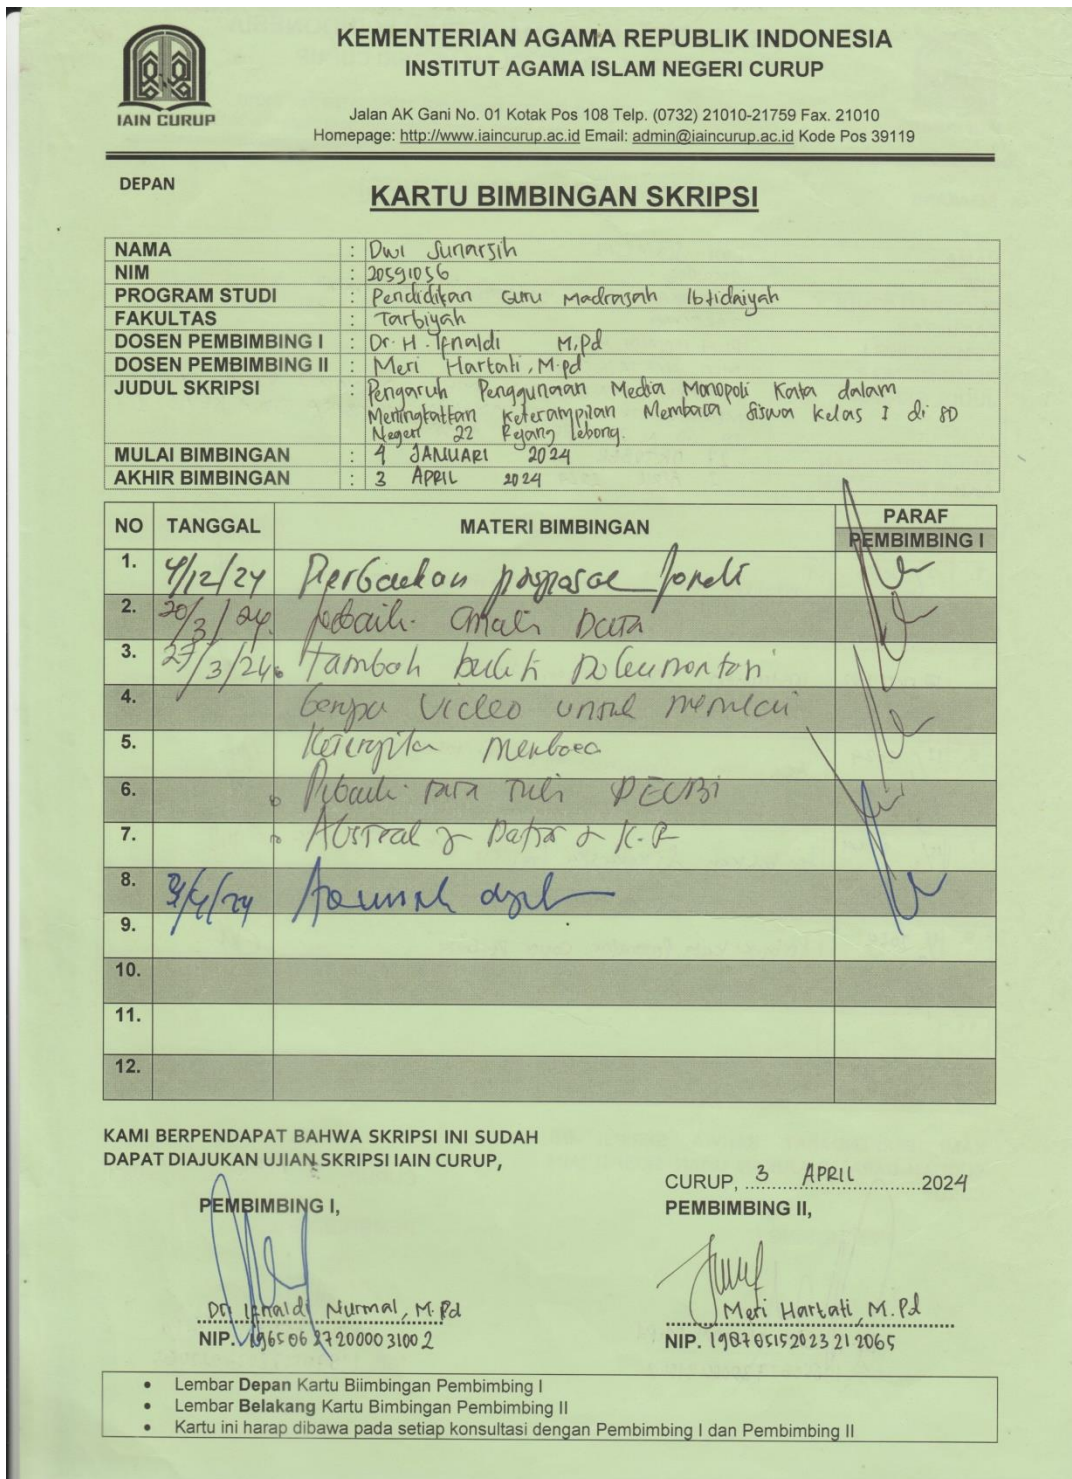 IAIN CURUP
KEMENTERIAN AGAMA REPUBLIK INDONESIA
INSTITUT AGAMA ISLAM NEGERI CURUP
Jalan AK Gani No. 01 Kotak Pos 108 Telp. (0732) 21010-21759 Fax. 21010
Homepage: http://www.iaincurup.ac.id Email: admin@iaincurup.ac.id Kode Pos 39119
DEPAN
KARTU BIMBINGAN SKRIPSI
NAMA : Dwi Sunarsih
NIM : 20591056
PROGRAM STUDI : Pendidikan Guru Madrasah Ibtidaiyah
FAKULTAS : Tarbiyah
DOSEN PEMBIMBING I : Dr. H. Ifnaldi M.Pd
DOSEN PEMBIMBING II : Meri Hartati, M.Pd
JUDUL SKRIPSI : Pengaruh Penggunaan Media Monopoli Kata dalam
Meningkatkan Keterampilan Membaca Siswa Kelas I di SD
Negeri 22 Rejang Lebong.
MULAI BIMBINGAN : 4 JANUARI 2024
AKHIR BIMBINGAN : 3 APRIL 2024
NO TANGGAL MATERI BIMBINGAN PARAF
PEMBIMBING I
1. 4/12/24
2. 20/3/24. Data
3. 27/3/24 Tambah bukti
4. video
5. Membaca
6.
7.
8.
9.
10.
11.
12.
KAMI BERPENDAPAT BAHWA SKRIPSI INI SUDAH
DAPAT DIAJUKAN UJIAN SKRIPSI IAIN CURUP,
CURUP, 3 APRIL 2024
PEMBIMBING I, PEMBIMBING II,
Dr. Ifnaldi Nurmal, M.Pd Meri Hartati, M.Pd
NIP. 196506272000031002 NIP. 198705152023212065
• Lembar Depan Kartu Biimbingan Pembimbing I
• Lembar Belakang Kartu Bimbingan Pembimbing II
• Kartu ini harap dibawa pada setiap konsultasi dengan Pembimbing I dan Pembimbing II